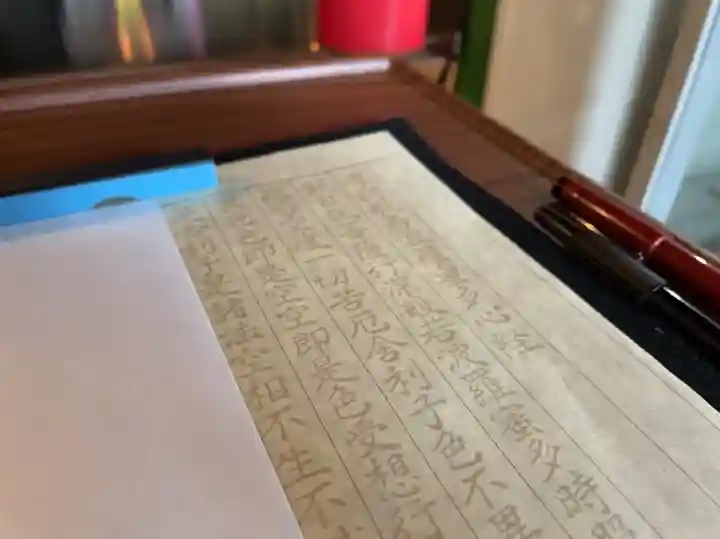 蜜多心経
行深般若波羅蜜多時照
一切苦厄舎利子色不異
即是空空即是色受想行
法空相不生不